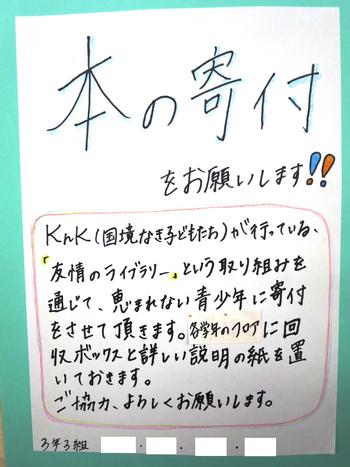 本の寄付
をお願いします!!
KnK(国境なき子どもたち)が行っている、
「友情のライブラリー」という取り組みを
通じて、恵まれない青少年に寄付
をさせて頂きます。各学年のフロアに回
収ボックスと詳しい説明の紙を置
いておきます。
ご協力、よろしくお願いします。
3年3組 ・ ・ ・